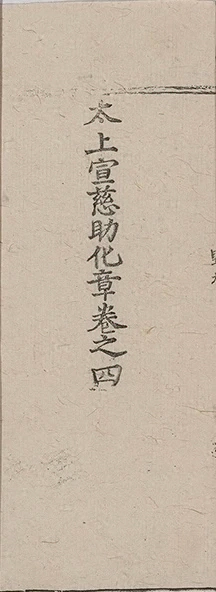 太上宣慈助化章卷之四